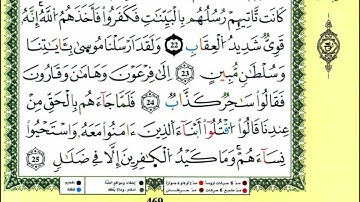 كَانَت تَّأْتِيهِمْ رُسُلُهُم بِالْبَيِّنَاتِ فَكَفَرُوا فَأَخَذَهُمُ اللَّهُ إِنَّهُ
قَوِيٌّ شَدِيدُ الْعِقَابِ 22 وَلَقَدْ أَرْسَلْنَا مُوسَىٰ بِآيَاتِنَا
وَسُلْطَانٍ مُّبِينٍ 23 إِلَىٰ فِرْعَوْنَ وَهَامَانَ وَقَارُونَ
فَقَالُوا سَاحِرٌ كَذَّابٌ 24 فَلَمَّا جَاءَهُم بِالْحَقِّ مِنْ
عِندِنَا قَالُوا اقْتُلُوا أَبْنَاءَ الَّذِينَ آمَنُوا مَعَهُ وَاسْتَحْيُوا
نِسَاءَهُمْ وَمَا كَيْدُ الْكَافِرِينَ إِلَّا فِي ضَلَالٍ 25
469